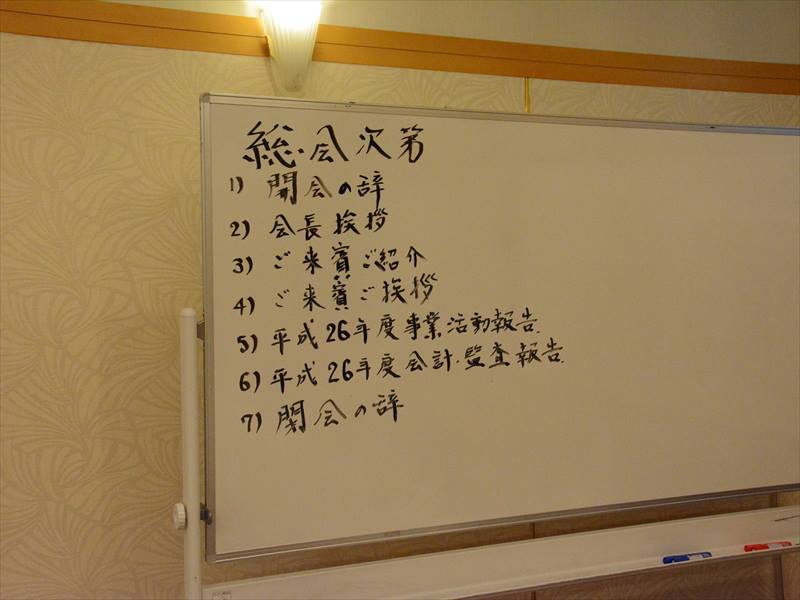 総会次第
1) 開会の辞
2) 会長挨拶
3) ご来賓ご紹介
4) ご来賓ご挨拶
5) 平成26年度事業活動報告
6) 平成26年度会計・監査報告
7) 閉会の辞